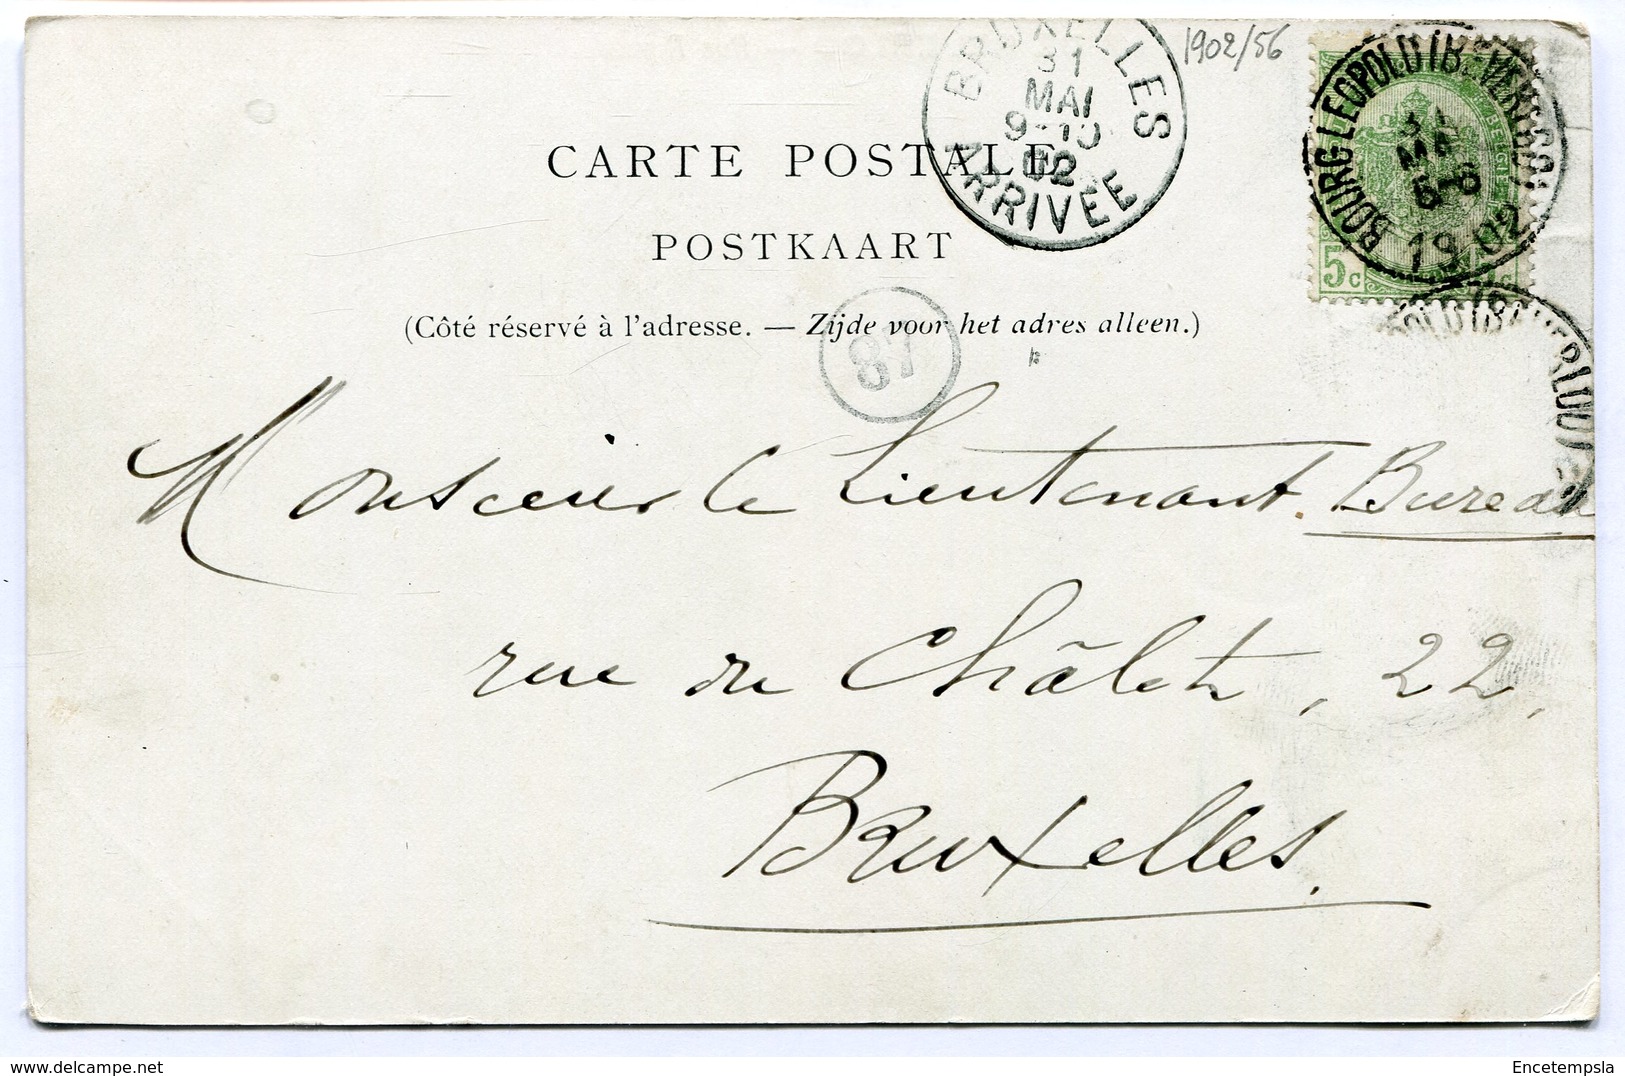 1902/56
BRUXELLES
31
MAI
9-10
02
ARRIVÉE
BOURG-LEOPOLD (BEVERLOO)
31
MAI
5-6
1902
BELGIQUE
5c
CARTE POSTALE
POSTKAART
(Côté réservé à l'adresse. — Zijde voor het adres alleen.)
87
Monsieur le Lieutenant Bureau
rue du Châlet, 22,
Bruxelles.
Encetempsla